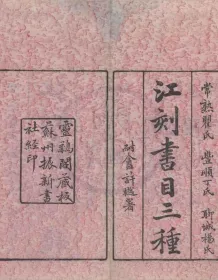 常熟瞿氏 豐順丁氏 聊城楊氏
江刻書目三種
耐盦許𨩆署
靈鶼閣藏板
蘇州振新書
社經印